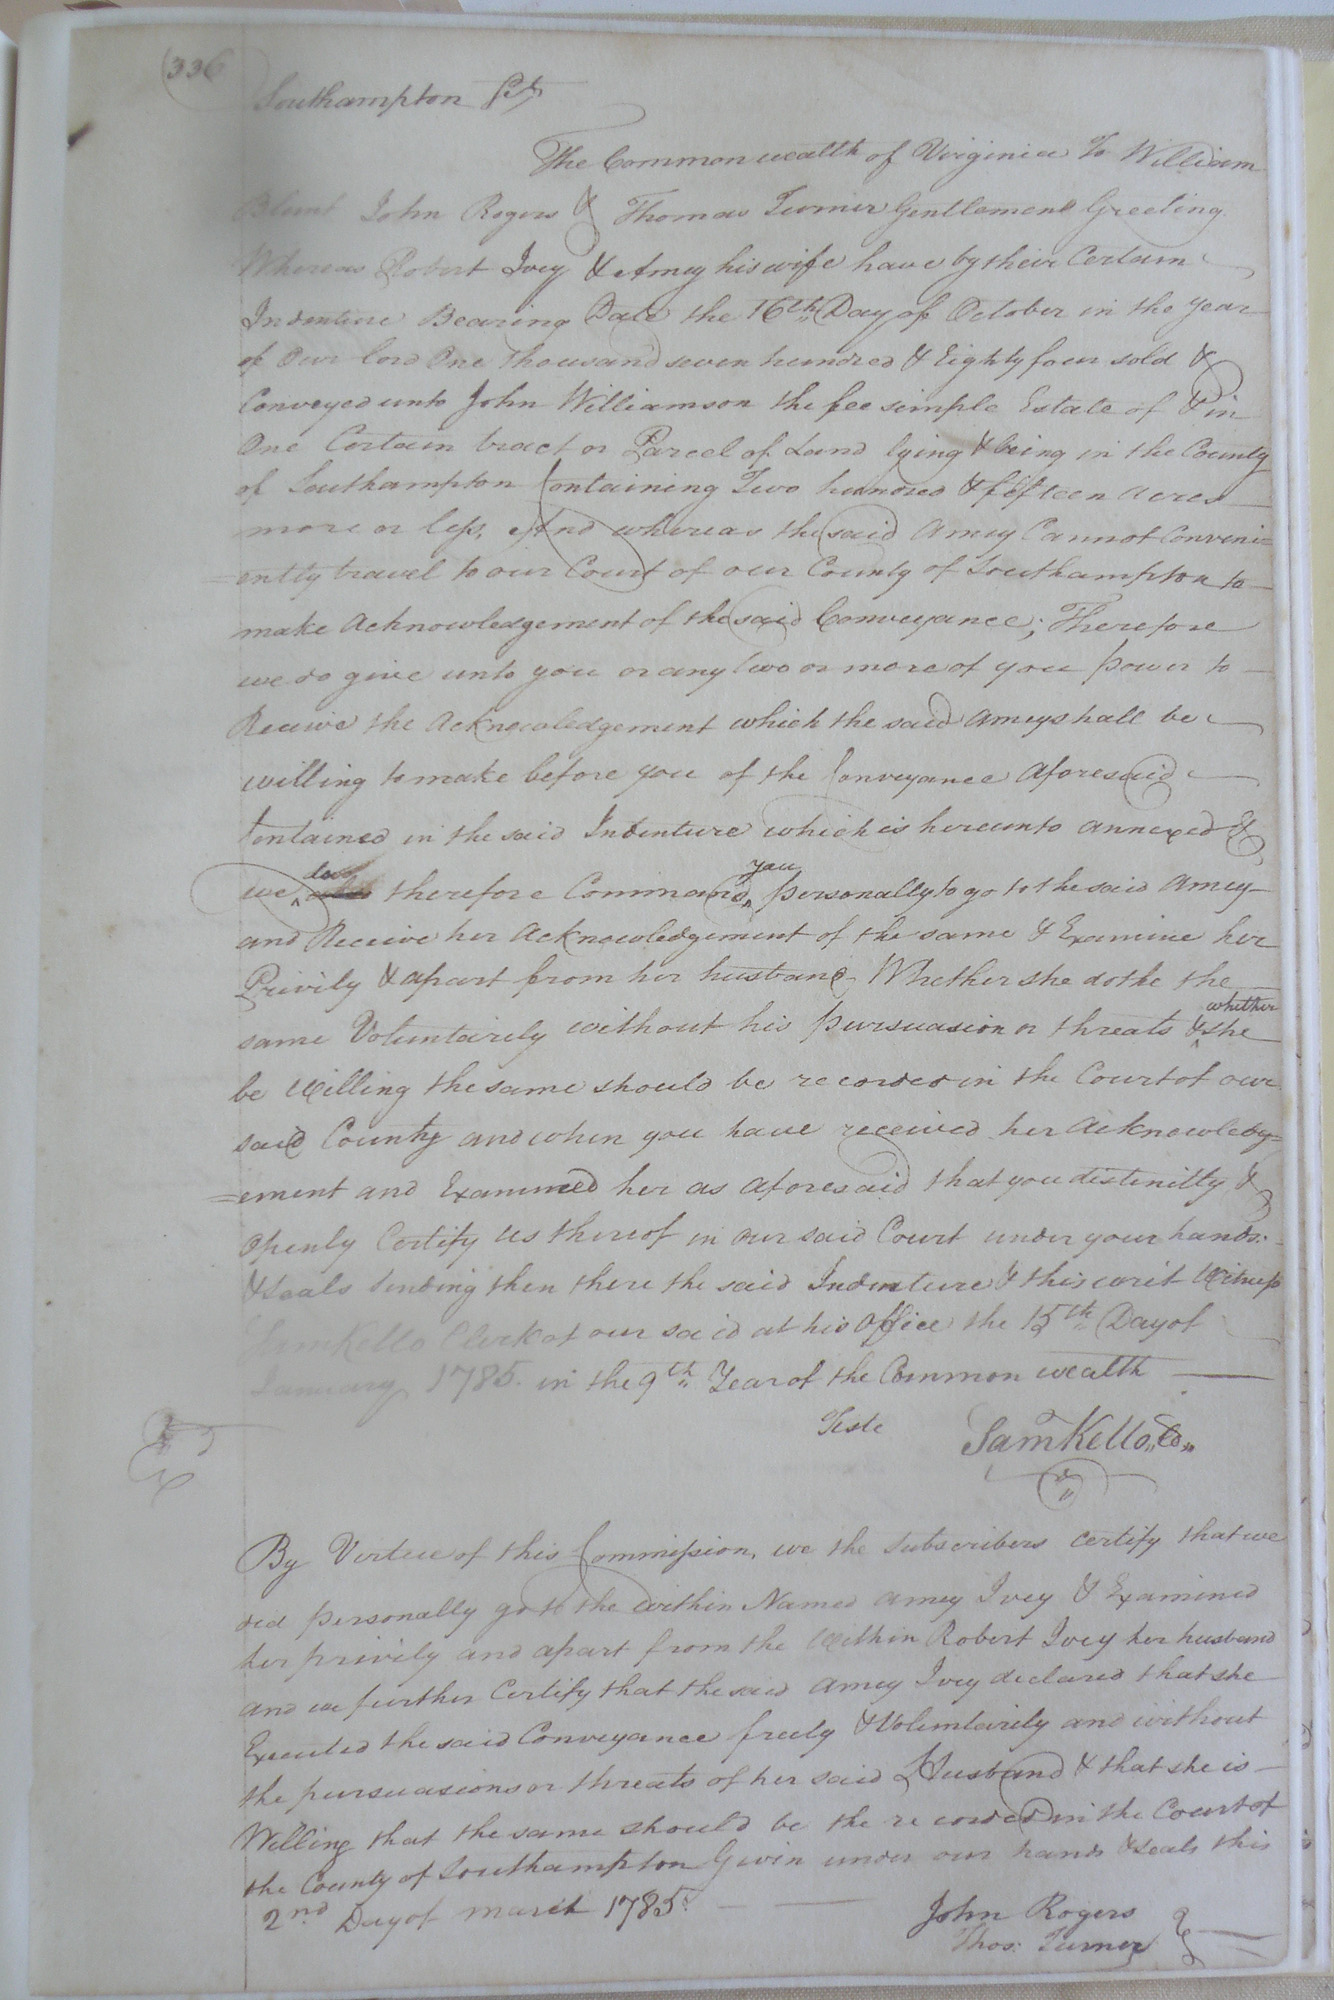 (336
Southampton Sct
The Commonwealth of Virginia To William
Blunt John Rogers & Thomas Turner Gentlemen Greeting
Whereas Robert Ivey & Amey his wife have by their Certain
Indenture Bearing Date the 16th Day of October in the year
of Our lord One thousand seven hundred & Eighty four sold &
Conveyed unto John Williamson the fee simple Estate of & in
One Certain tract or Parcel of Land lying & being in the County
of Southampton Containing Two hundred & fifteen Acres
more or less, And whereas the said Amey Cannot Conveni=
=ently travel to our Court of our County of Southampton to
make Acknowledgement of the said Conveyance; Therefore
we do give unto you or any two or more of you power to
Receive the Acknowledgement which the said Amey shall be
willing to make before you of the Conveyance Aforesaid
Contained in the said Indenture which is hereunto annexed &
we do therefore Command you personally to go to the said Amey
and Receive her Acknowledgement of the same & Examine her
Privily & apart from her husband Whether she dothe the
same Voluntairly without his pursuasion or threats & whither she
be Willing the same should be recorded in the Court of our
said County and when you have received her Acknowledg=
=ement and Examined her as aforesaid that you distinctly &
Openly Certify us thereof in our said Court under your hands
& seals sending then there the said Indenture & this writ Witness
Sam Kello Clerk of our said at his Office the 15th Day of
January 1785. in the 9th Year of the Common wealth
Teste Sam Kello
By Virtue of this Commission, we the Subscribers Certify that we
did personally go to the within Named Amey Ivey & Examined
her privily and apart from the Within Robert Ivey her husband
and we further Certify that the said Amey Ivey declared that she
Executed the said Conveyance freely & Voluntarily and without
the pursuasions or threats of her said Husband & that she is
Willing that the same should be the recorded in the Court of
the County of Southampton Givin under our hands & seals this
2nd Day of March 1785.
John Rogers
Thos: Turner